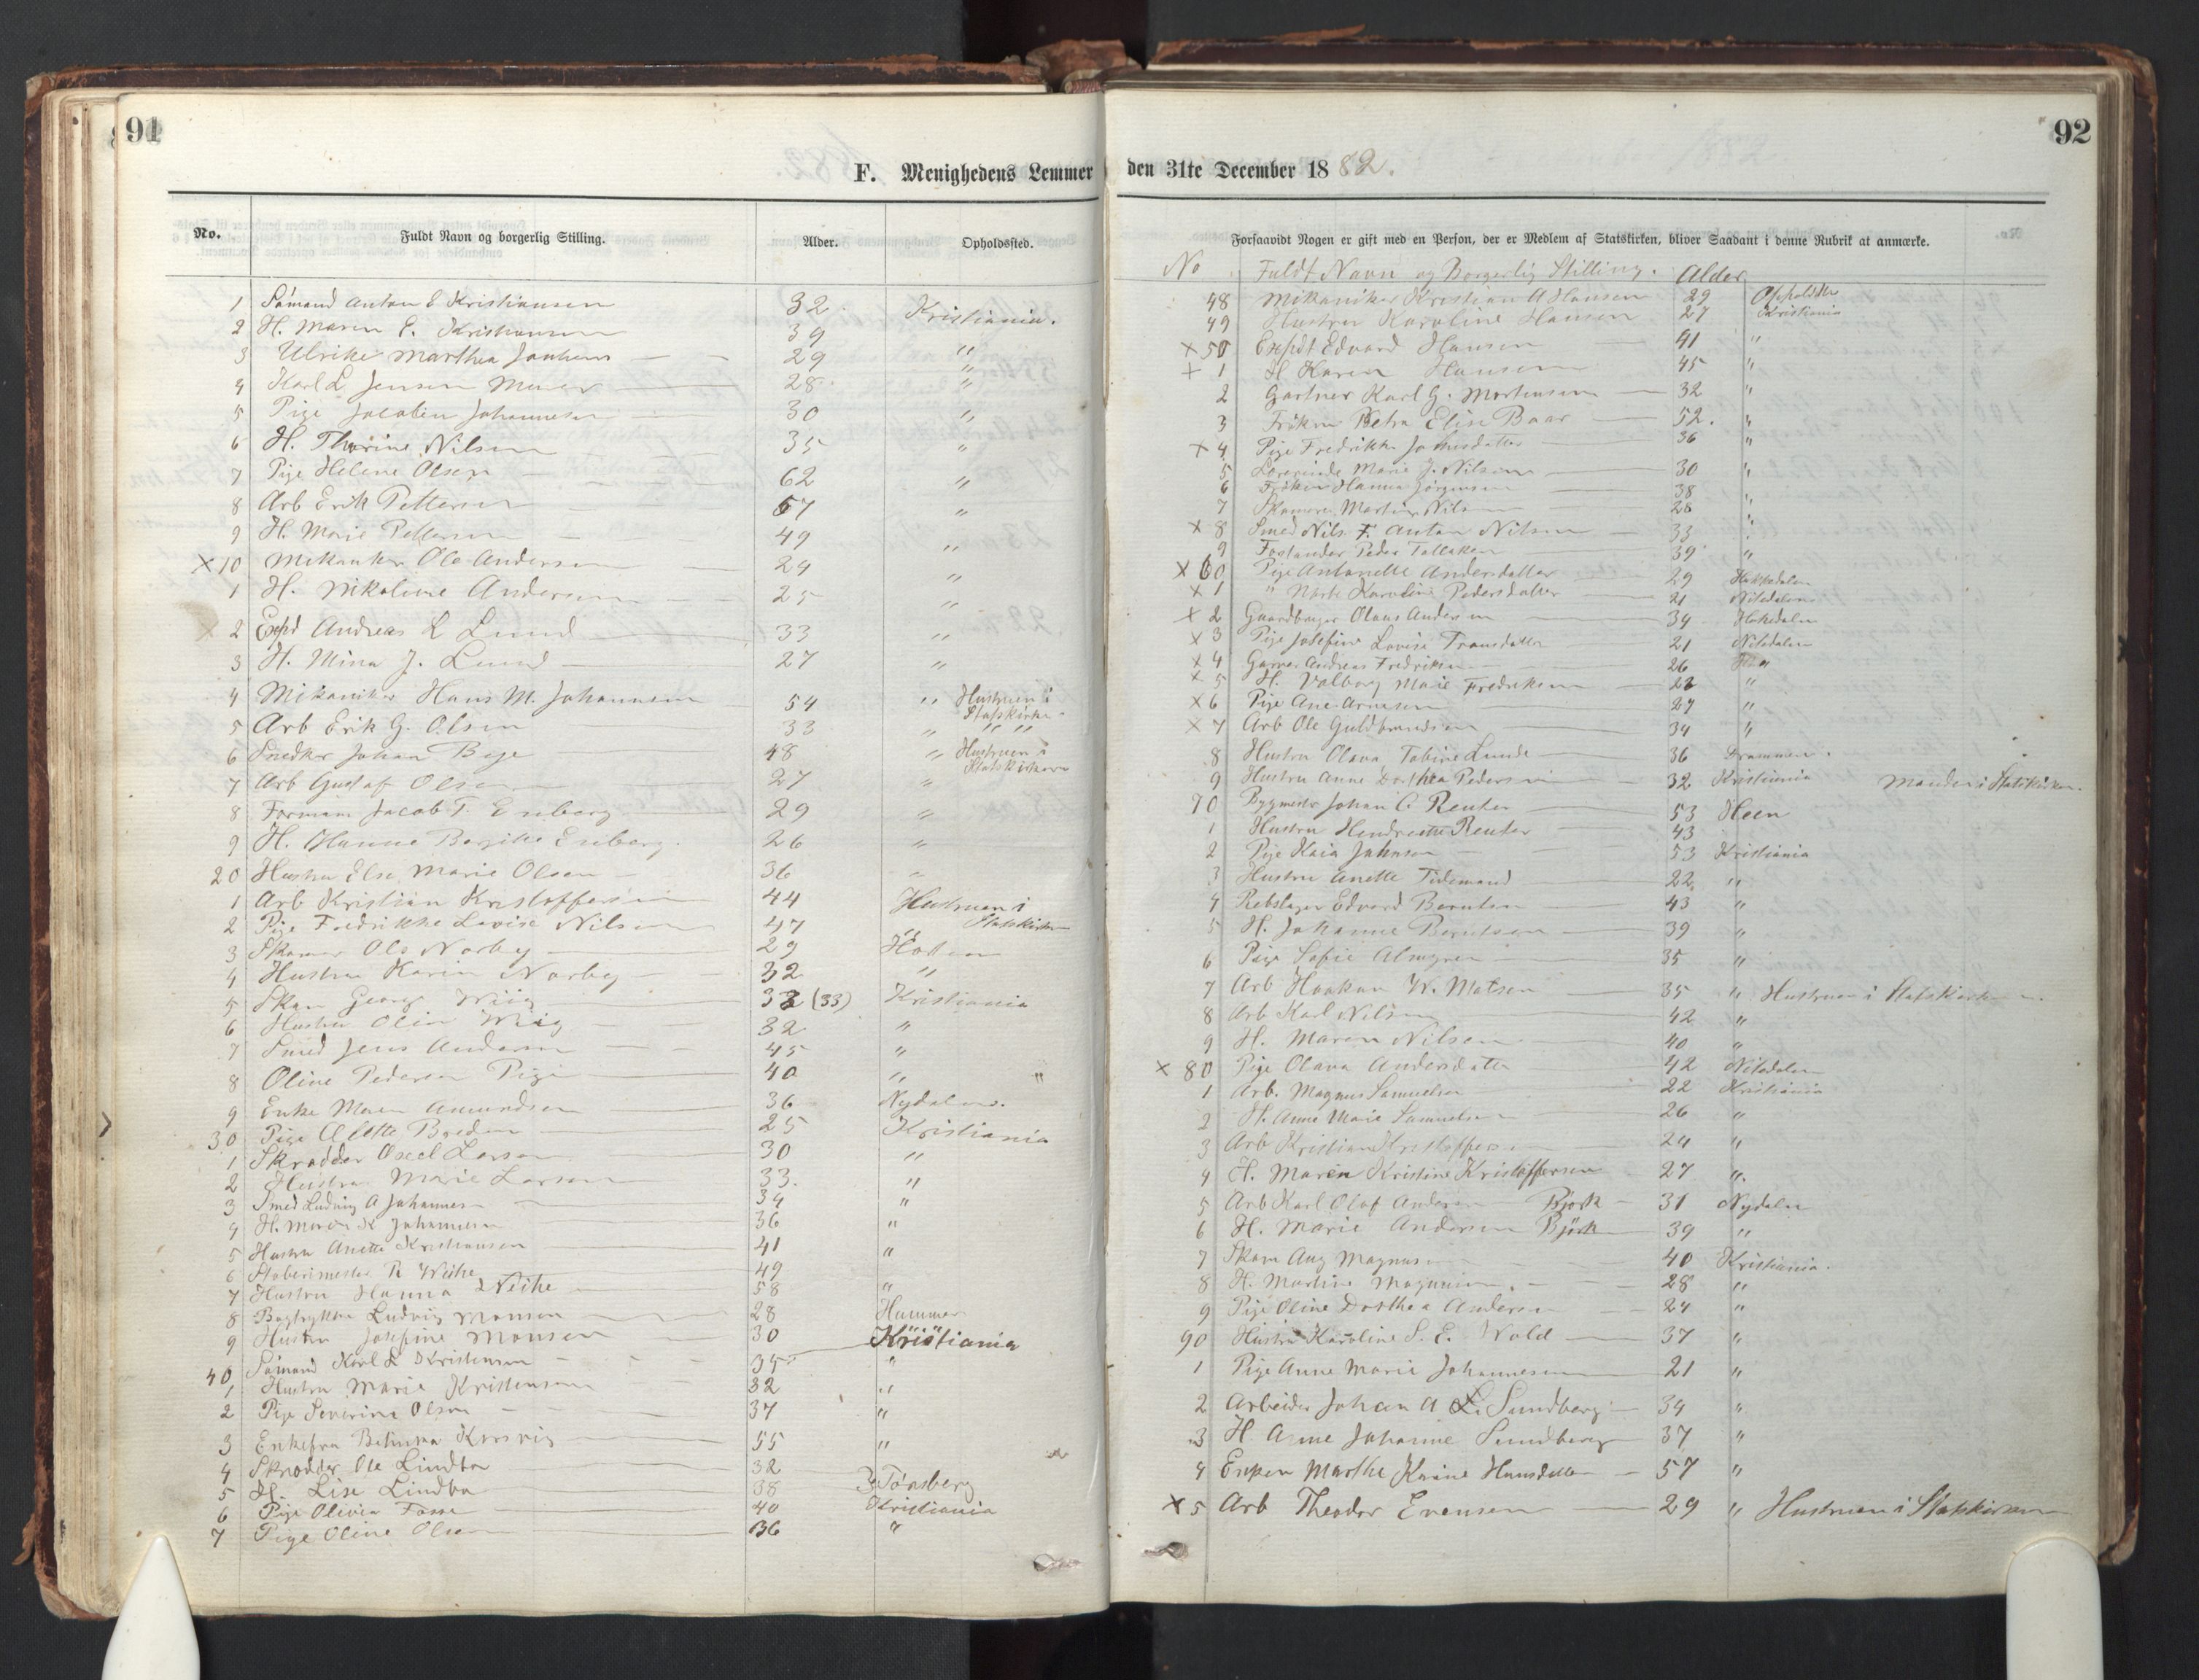 91
F. Menighedens Lemmer
No.
Fuldt Navn og borgerlig Stilling.
Alder.
Opholdssted.
1 Sömand Anton E Kristiansen 32 Kristiania.
2 H. Maren E. Kristiansen 39
3 Ulrike Marthea 29 "
4 Karl L Jensen 28 "
5 Pige Jacobin Johannesen 30 "
6 H. Thorine Nilsen 35 "
7 Pige Helene Olsen 62 "
8 Arb Erik Pettersen 57 "
9 H. Marie Pettersen 49 "
×10 Mekaniker Ole Andersen 24 "
1 H. Nikoline Andersen 25 "
× 2 Expd Andreas L Lund 33 "
3 H. Mina J. Lund 27 "
4 Mekaniker Hans M. Johannesen 54 " Hustruen i Statskirken
5 Arb Erik G. Olsen 33 " " "
6 Snedker Johan Boje 48 " Hustruen i Statskirken
7 Arb Gustaf Olsen 27 "
8 Formann Jacob T. Enberg 29 "
9 H. Hanne Bergithe Enberg. 26 "
20 Hustru Else Marie Olsen 36 "
1 Arb Kristian Kristoffersen 44 Hustruen i Statskirken
2 Pige Fredrikke Lovise Nilsen 47 "
3 Skomar Ole Norby 29 Horten
4 Hustrue Karin Norby 32 "
5 Skom Georg Wiig 33 (33) Kristiania
6 Hustru Olin Wiig 32 "
7 Smed Jens Andersen 45 "
8 Oline Pedersen Pige 40 " "
9 Enke Maren Amundsen 36 Nydalen.
30 Pige Alette 25 Kristiania
1 Skrædder Oscel Larsen 30 "
2 Hustru Marie Larsen 33. "
3 Smed Ludvig A Johannes 34 "
4 H. Maren K Johannesen 36 "
5 Hustru Anette Kristiansen 41 "
6 R Weihe 49
7 Hustru Hanna Weihe 58 "
8 Bogtrykker Ludvig Monsen 28 Hammer
9 Hustru Josefine Monsen 30 Kristiania
40 Sömand Karl L Kristensen 35 "
1 Hustru Marie Kristensen 32 "
2 Pige Severine Olsen 37 "
3 Enkefru 55 "
4 Skrædder Ole Lindbo 32
5 H. Lise Lindbo 38 Tönsberg
6 Pige Olivia Fosse 40 Kristiania
7 Pige Oline Olsen 36 "
92
den 31te December 1882.
Forsaavidt Nogen er gift med en Person, der er Medlem af Statskirken, bliver Saadant i denne Rubrik at anmærke.
No Fuldt Navn og Borgerlig Stilling. Alder
48 Mekaniker Kristian A Hansen 29 Opholdste
49 Hustru Karoline Hansen 27 Kristiania
×50 Expdt Edvard Hansen 41 "
+ 1 H Karen Hansen 45 "
2 Gartner Karl G. Mortensen 32 "
3 Fröken Petra Elise Baar 52. "
×4 Pige Fredrikke 36 "
5 Lærerinde Marie J. Nilsen 30 "
6 Fröken Hanna Jörgensen 38 "
7 Skomar. Martin Nilsen 28 "
×8 Smed Nils F. Anton Nilsen 33 "
9 Forstander Peder Tallaksen 39 "
×60 Pige Antonette Andersdatter 29 Hakkedalen
×1 " Marte Karoline Pedersdatter 21 Nitedalen
×2 Gaardbruger Olaus Andersen 34 Hakedalen
×3 Pige Josefine Lovise Fransdatter 21 Nitedalen
×4 Garver Andreas Fredriksen 26 "
×5 H. Valborg Marie Fredriksen 28 "
×6 Pige Ane Arnesen 27 "
×7 Arb Ole Guldbrandsen 34 "
8 Hustru Olava Tobine Lunde 36 Drammen.
9 Hustru Anne Dorthea Pedersen 32 Kristiania Manden i Statskirken.
70 Bygmester Johan C Reuter 53 Heen
1 Hustru Hendriette Reuter 43
2 Pige Kaia Johnsen 53 Kristiania
3 Hustru Anette Tidemand 22 "
4 Rebslager Edvard Berntsen 43 "
5 H. Johanne Berntsen 39 "
6 Pige Sofie Almgren 35 "
7 Arb Haakon W. Matsen 35 " Hustruen i Statskirken.
8 Arb Karl Nilsen 42 "
9 H. Maren Nilsen 40 "
×80 Pige Olava Andersdatter 42 Nitedalen
1 Arb. Magnus Samuelsen 22 Kristiania
2 H. Anne Marie Samuelsen 26 "
3 Arb Kristian Kristoffersen 24 "
4 H. Maren Kristine Kristoffersen 27 "
5 Arb Karl Olof Andersen Björk 31 Nydalen
6 H. Marie Andersen Björk 39 "
7 Skom Aug Magnusen 40 Kristiania.
8 H. Martine Magnusen 28 "
9 Pige Oline Dorthea Andersen 24 "
90 Hustru Karoline S. E. Wold 37 "
1 Pige Anne Marie Johannesen 21 "
2 Arbeider Johan A L. Sundberg 34 "
3 H. Anne Johanne Sundberg 37 "
4 Enken Marthe Karine Hansdatter 57 "
×5 Arb Theodor Evensen 29 " Hustruen i Statskirken